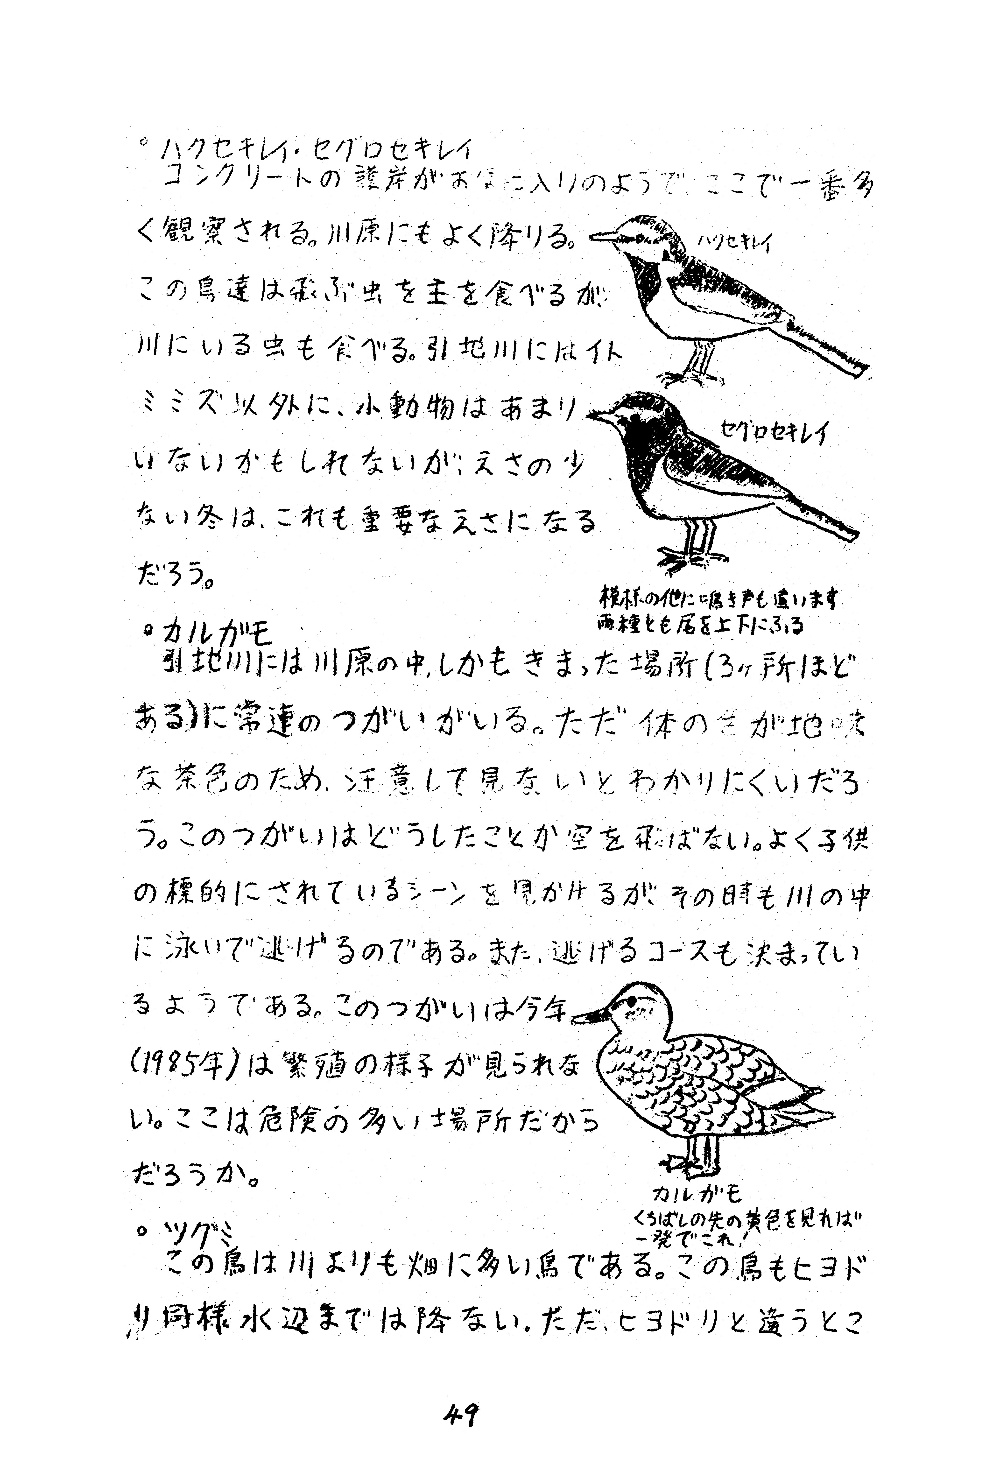 ° ハクセキレイ・セグロセキレイ
コンクリートの護岸がお気に入りのようで、ここで一番多
く観察される。川原にもよく降りる。
ハクセキレイ
この鳥達は飛ぶ虫を主を食べるが、
川にいる虫も食べる。引地川にはイト
ミミズ以外に、小動物はあまり
セグロセキレイ
いないかもしれないが、えさの少
ない冬は、これも重要なえさになる
だろう。
模様の他に鳴き声も違います
両種とも尾を上下にふる
° カルガモ
引地川には川原の中、しかもきまった場所(3ヶ所ほど
ある)に常連のつがいがいる。ただ体の色が地味
な茶色のため、注意して見ないとわかりにくいだろ
う。このつがいはどうしたことか空を飛ばない。よく子供
の標的にされているシーンを見かけるが、その時も川の中
に泳いで逃げるのである。また、逃げるコースも決まってい
るようである。このつがいは今年
(1985年)は繁殖の様子が見られな
い。ここは危険の多い場所だから
だろうか。
カルガモ
くちばしの先の黄色を見れば
一発でこれ!
° ツグミ
この鳥は川よりも畑に多い鳥である。この鳥もヒヨド
リ同様水辺までは降ない。ただ、ヒヨドリと違うとこ
49